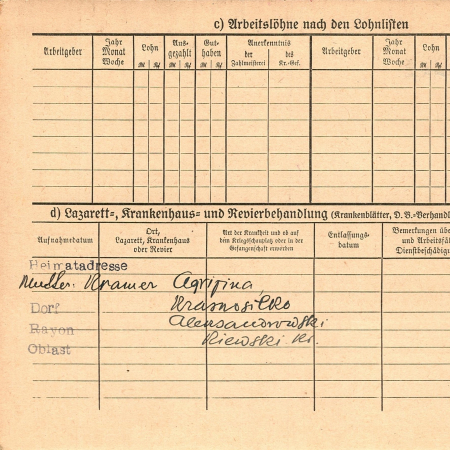 c) Arbeitslöhne nach den Lohnlisten
Arbeitgeber Jahr Monat Woche Lohn Aus-gezahlt Gut-haben Anerkenntnis Arbeitgeber Jahr Monat Woche Lohn
RM Rpf RM Rpf RM Rpf der Zahlmeisterei des Kr.-Gef. RM Rpf
d) Lazarett-, Krankenhaus- und Revierbehandlung (Krankenblätter, D. B.-Verhandl
Aufnahmedatum Ort, Lazarett, Krankenhaus oder Revier Art der Krankheit und ob auf dem Kriegsschauplatz oder in der Gefangenschaft erworben Entlassungs-datum Bemerkungen über und Arbeitsfä Dienstbeschädig
Heimatadresse
Mutter: Kramer Agripina,
Dorf Krasnosilko
Rayon Aleksandrowski
Oblast Kiewski Kr.